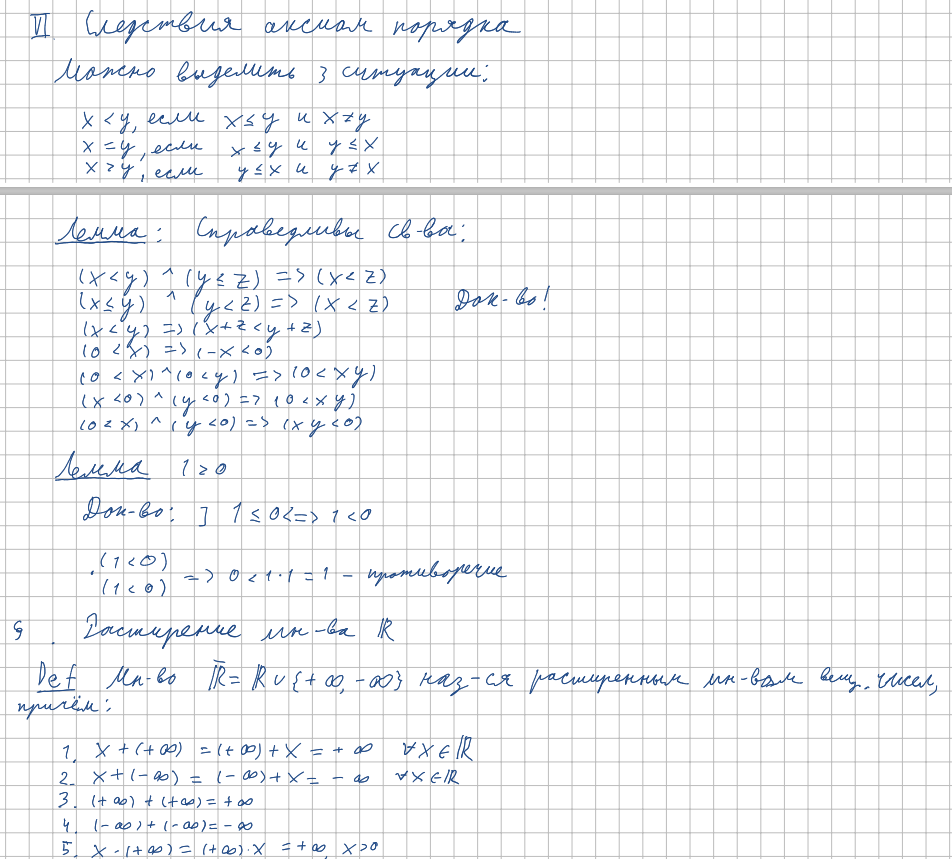 VI Следствия аксиом порядка
Можно выделить 3 ситуации:
x < y, если x ≤ y и x ≠ y
x = y, если x ≤ y и y ≤ x
x > y, если y ≤ x и y ≠ x
Лемма: Справедливы св-ва:
(x < y) ^ (y ≤ z) => (x < z)
(x ≤ y) ^ (y < z) => (x < z) Док-во!
(x < y) => (x + z < y + z)
(0 < x) => (-x < 0)
(0 < x) ^ (0 < y) => (0 < xy)
(x < 0) ^ (y < 0) => (0 < xy)
(0 < x) ^ (y < 0) => (xy < 0)
Лемма 1 > 0
Док-во: ] 1 ≤ 0 <=> 1 < 0
. (1 < 0)
(1 < 0) => 0 < 1 · 1 = 1 - противоречие
§ . Расширение мн-ва ℝ
Def Мн-во ℝ̄ = ℝ ∪ {+∞, -∞} наз-ся расширенным мн-вом вещ. чисел,
причём:
1. x + (+∞) = (+∞) + x = +∞ ∀x ∈ ℝ
2. x + (-∞) = (-∞) + x = -∞ ∀x ∈ ℝ
3. (+∞) + (+∞) = +∞
4. (-∞) + (-∞) = -∞
5. x · (+∞) = (+∞) · x = +∞, x > 0